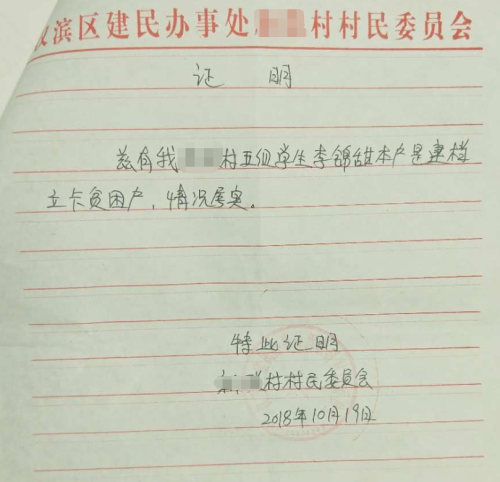 汉滨区建民办事处 村村民委员会
证 明
兹有我 村五组学生李锦甜本户是建档
立卡贫困户，情况属实。
特此证明
村村民委员会
2018年10月19日